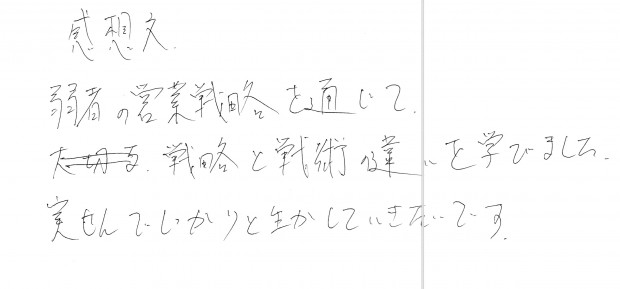 感想文.
弱者の営業戦略を通じて.
戦略と戦術違いを学びました.
実せんでしっかりと生かしていきたいです.